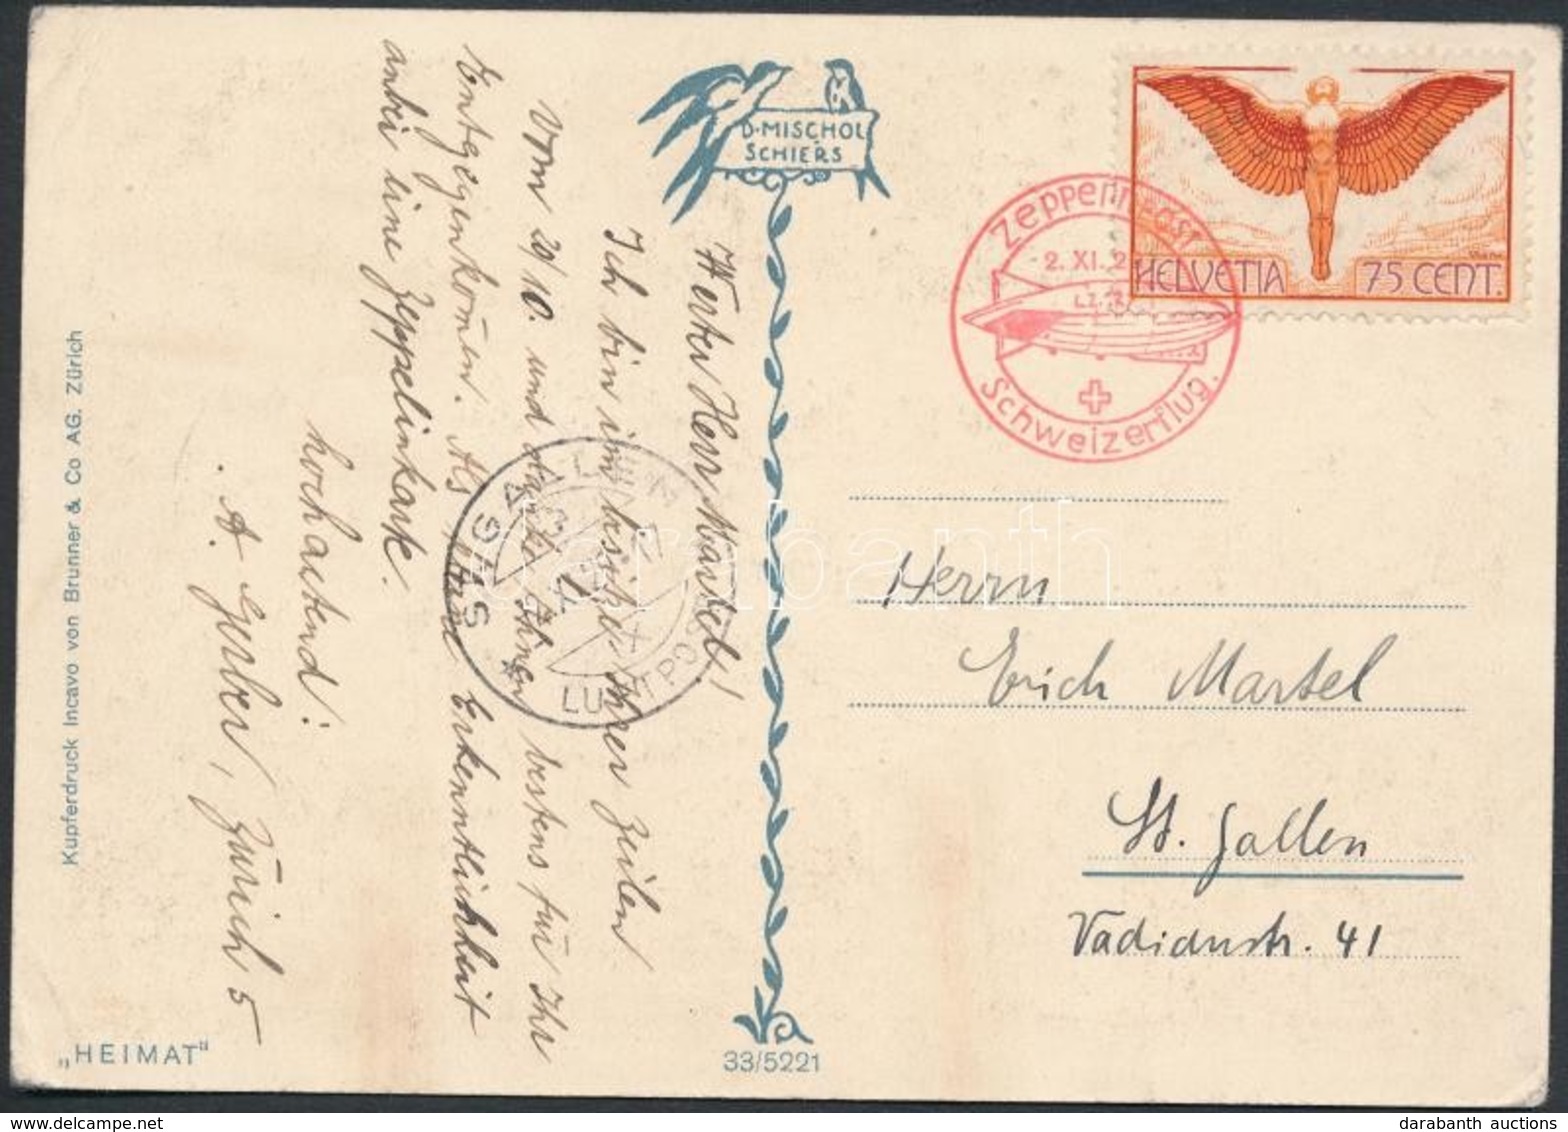 D. MISCHOL
SCHIERS
Zeppelinpost
2. XI. 2
LZ.
Schweizerflug.
HELVETIA 75 CENT.
Werter Herr Martel!
Ich bin im Besitze Ihrer Zeilen
vom 29/10. und danke Ihnen bestens für Ihr
Entgegenkom̄en. Als kleine Erkenntlichkeit
anbei eine Zeppelinkarte.
hochachtend!
A. Gerber, Zürich 5
ST. GALLEN
LUFTPOST
Herrn
Erich Martel
St. Gallen
Vadianstr. 41
Kupferdruck Incavo von Brunner & Co AG. Zürich
„HEIMAT"
33/5221
darabanth
darabanth auctions